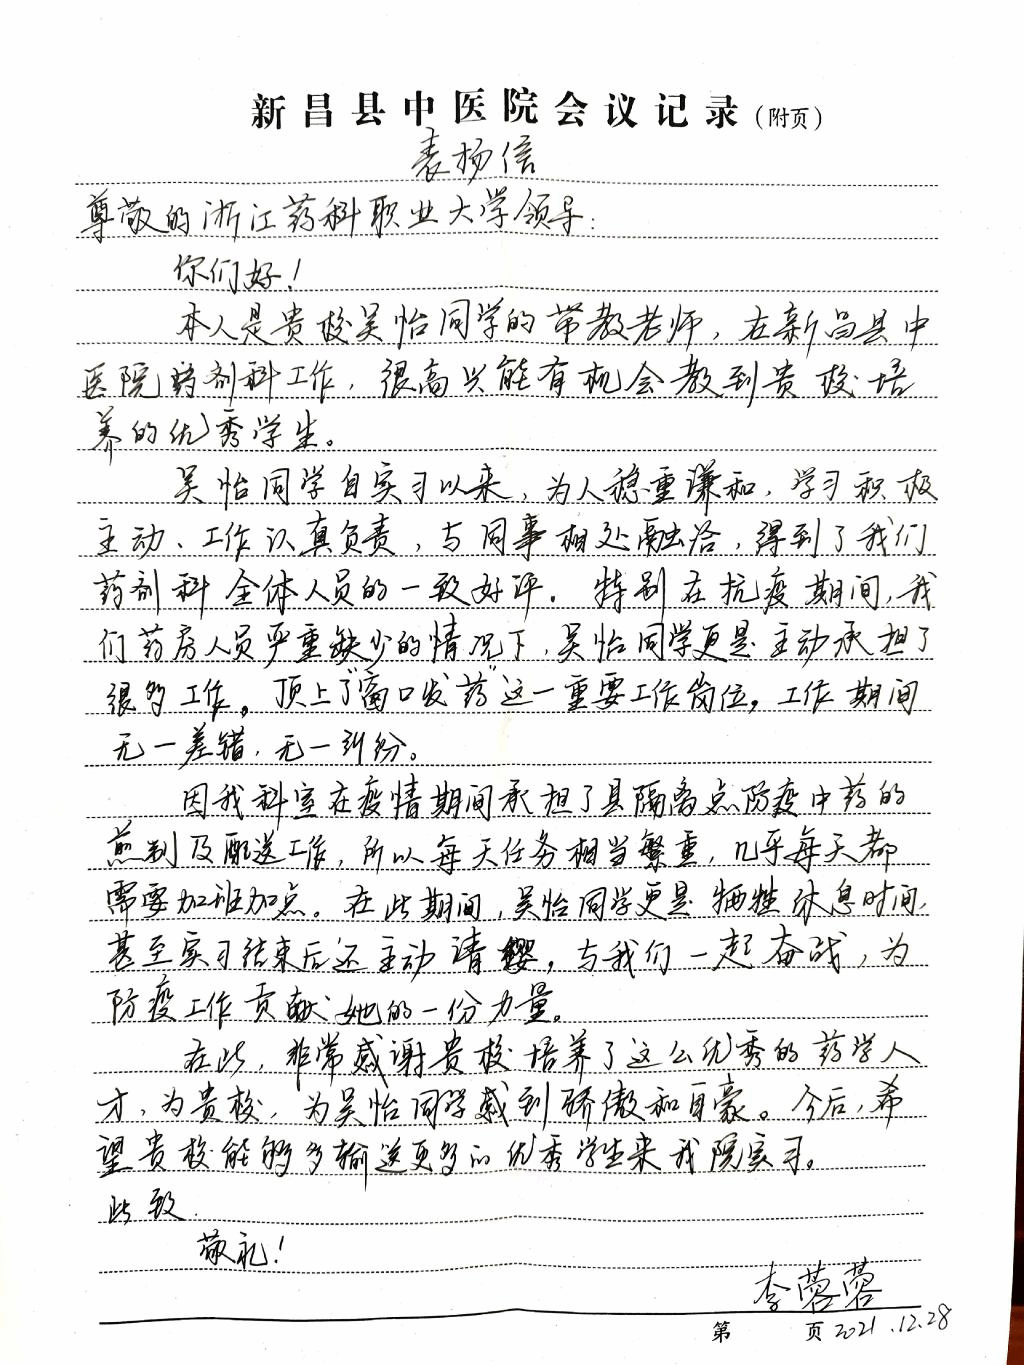 新昌县中医院会议记录（附页）
表扬信
尊敬的浙江药科职业大学领导：
你们好！
本人是贵校吴怡同学的带教老师，在新昌县中
医院药剂科工作，很高兴能有机会教到贵校培
养的优秀学生。
吴怡同学自实习以来，为人稳重谦和，学习积极
主动、工作认真负责，与同事相处融洽，得到了我们
药剂科全体人员的一致好评。特别在抗疫期间，我
们药房人员严重缺少的情况下，吴怡同学更是主动承担了
很多工作。顶上了“窗口发药”这一重要工作岗位。工作期间
无一差错，无一纠纷。
因我科室在疫情期间承担了县隔离点防疫中药的
煎制及配送工作，所以每天任务相当繁重，几乎每天都
需要加班加点。在此期间，吴怡同学更是牺牲休息时间，
甚至实习结束后还主动请缨，与我们一起奋战，为
防疫工作贡献她的一份力量。
在此，非常感谢贵校培养了这么优秀的药学人
才，为贵校，为吴怡同学感到骄傲和自豪。今后，希
望贵校能够多输送更多的优秀学生来我院实习。
此致
敬礼！
李蓉蓉
第 页 2021.12.28